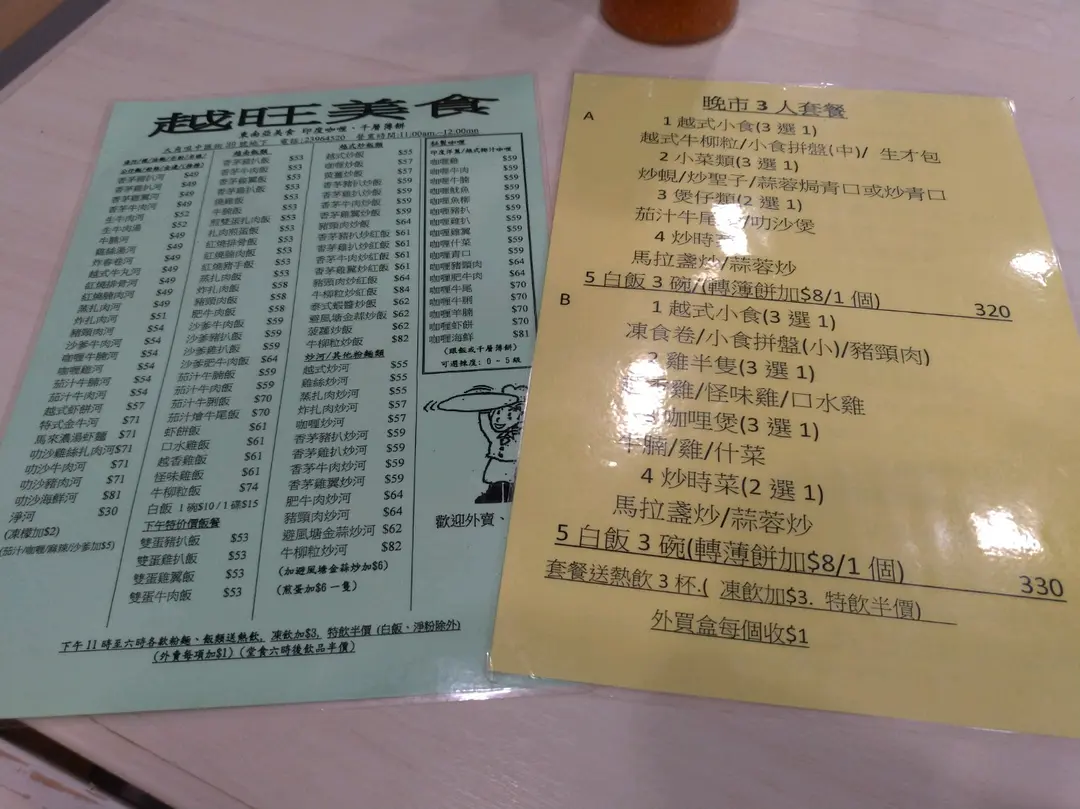 越旺美食
東南亞美食 印度咖喱、千層薄餅
電話:23964520 營業時間:11:00am.-12:00mn
香茅豬扒河 $49
香茅雞扒河 $49
香茅雞翼河 $49
香茅牛肉河 $49
生牛肉河 $52
生牛肉湯 $52
牛腩河 $49
雞絲湯河 $49
炸春卷河 $49
越式牛丸河 $49
紅燒排骨河 $49
紅燒腩肉河 $49
蒸扎肉河 $49
炸扎肉河 $51
豬頸肉河 $54
沙爹牛肉河 $54
咖喱牛腩河 $54
咖喱雞河 $54
茄汁牛腩河 $54
茄汁牛肉河 $54
越式虾餅河 $57
特式金牛河 $71
馬來濃湯虾麵 $71
叻沙雞絲扎肉河$71
叻沙牛肉河 $71
叻沙豬肉河 $71
叻沙海鮮河 $81
淨河 $30
(凍檬加$2)
(茄汁/咖喱/麻辣/沙爹加$5)
越南飯類
香茅豬扒飯 $53
香茅牛肉飯 $53
香茅雞翼飯 $53
香茅雞扒飯 $53
燒雞飯 $53
牛腩飯 $53
煎雙蛋扎肉飯 $53
扎肉煎蛋飯 $53
紅燒排骨飯 $53
紅燒腩肉飯 $53
紅燒豬手飯 $53
蒸扎肉飯 $53
炸扎肉飯 $58
豬頸肉飯 $58
肥牛肉飯 $58
沙爹牛肉飯 $59
沙爹豬扒飯 $59
沙爹雞扒飯 $59
沙爹肥牛肉飯 $64
茄汁牛腩飯 $59
茄汁牛肉飯 $59
茄汁牛脷飯 $70
茄汁燴牛尾飯 $70
虾餅飯 $61
口水雞飯 $61
越香雞飯 $61
怪味雞飯 $61
牛柳粒飯 $74
白飯 1碗$10/1碟$15
下午特價慣飯餐
雙蛋豬扒飯 $53
雙蛋雞扒飯 $53
雙蛋雞翼飯 $53
雙蛋牛肉飯 $53
越式炒飯類
越式炒飯 $55
咖喱炒飯 $57
菠蘿炒飯 $57
香茅豬扒炒飯 $59
香茅雞扒炒飯 $59
香茅牛肉炒飯 $59
香茅雞翼炒飯 $59
豬頸肉炒飯 $64
香茅豬扒炒紅飯 $61
香茅雞扒炒紅飯 $61
香茅牛肉炒紅飯 $61
香茅雞翼炒紅飯 $61
豬頸肉炒紅飯 $64
牛柳粒炒紅飯 $84
泰式蝦醬炒飯 $62
避風塘金蒜炒飯 $62
菠蘿炒飯 $62
牛柳粒炒飯 $82
炒河/其他粉麵類
越式炒河 $55
雞絲炒河 $55
蒸扎肉炒河 $55
炸扎肉炒河 $57
咖喱炒河 $57
香茅豬扒炒河 $59
香茅雞扒炒河 $59
香茅牛肉炒河 $59
香茅雞翼炒河 $59
肥牛肉炒河 $64
豬頸肉炒河 $64
避風塘金蒜炒河 $62
牛柳粒炒河 $82
(加避風塘金蒜炒加$6)
(煎蛋加$6一隻)
咖喱雞 $59
咖喱牛肉 $59
咖喱牛腩 $59
咖喱魷魚 $59
咖喱魚柳 $59
咖喱豬扒 $59
咖喱雞扒 $59
咖喱雞翼 $59
咖喱什菜 $59
咖喱青口 $59
咖喱豬頸肉 $64
咖喱肥牛肉 $64
咖喱牛尾 $70
咖喱牛脷 $70
咖喱羊腩 $70
咖喱虾餅 $70
咖喱海鮮 $81
(跟飯或千層薄餅)
可選辣度:0-5級
歡迎外賣、
下午11時至六時各款粉麵、飯類送熱飲, 凍飲加$3, 特飲半價 (白飯、淨粉除外)
(外賣每項加$1) (堂食六時後飲品半價)
晚市 3 人套餐
A
1 越式小食(3 選 1)
越式牛柳粒/小食拼盤(中)/ 生才包
2 小菜類(3 選 1)
炒蜆/炒聖子/蒜蓉焗青口或炒青口
3 煲仔類(2 選 1)
茄汁牛尾煲/叻沙煲
4 炒時菜
馬拉盞炒/蒜蓉炒
5 白飯 3 碗/(轉簿餅加$8/1 個) 320
B
1 越式小食(3 選 1)
凍食卷/小食拼盤(小)/豬頸肉)
2 雞半隻(3 選 1)
香雞/怪味雞/口水雞
3 咖哩煲(3 選 1)
牛腩/雞/什菜
4 炒時菜(2 選 1)
馬拉盞炒/蒜蓉炒
5 白飯 3 碗(轉薄餅加$8/1 個) 330
套餐送熱飲 3 杯.( 凍飲加$3. 特飲半價)
外買盒每個收$1